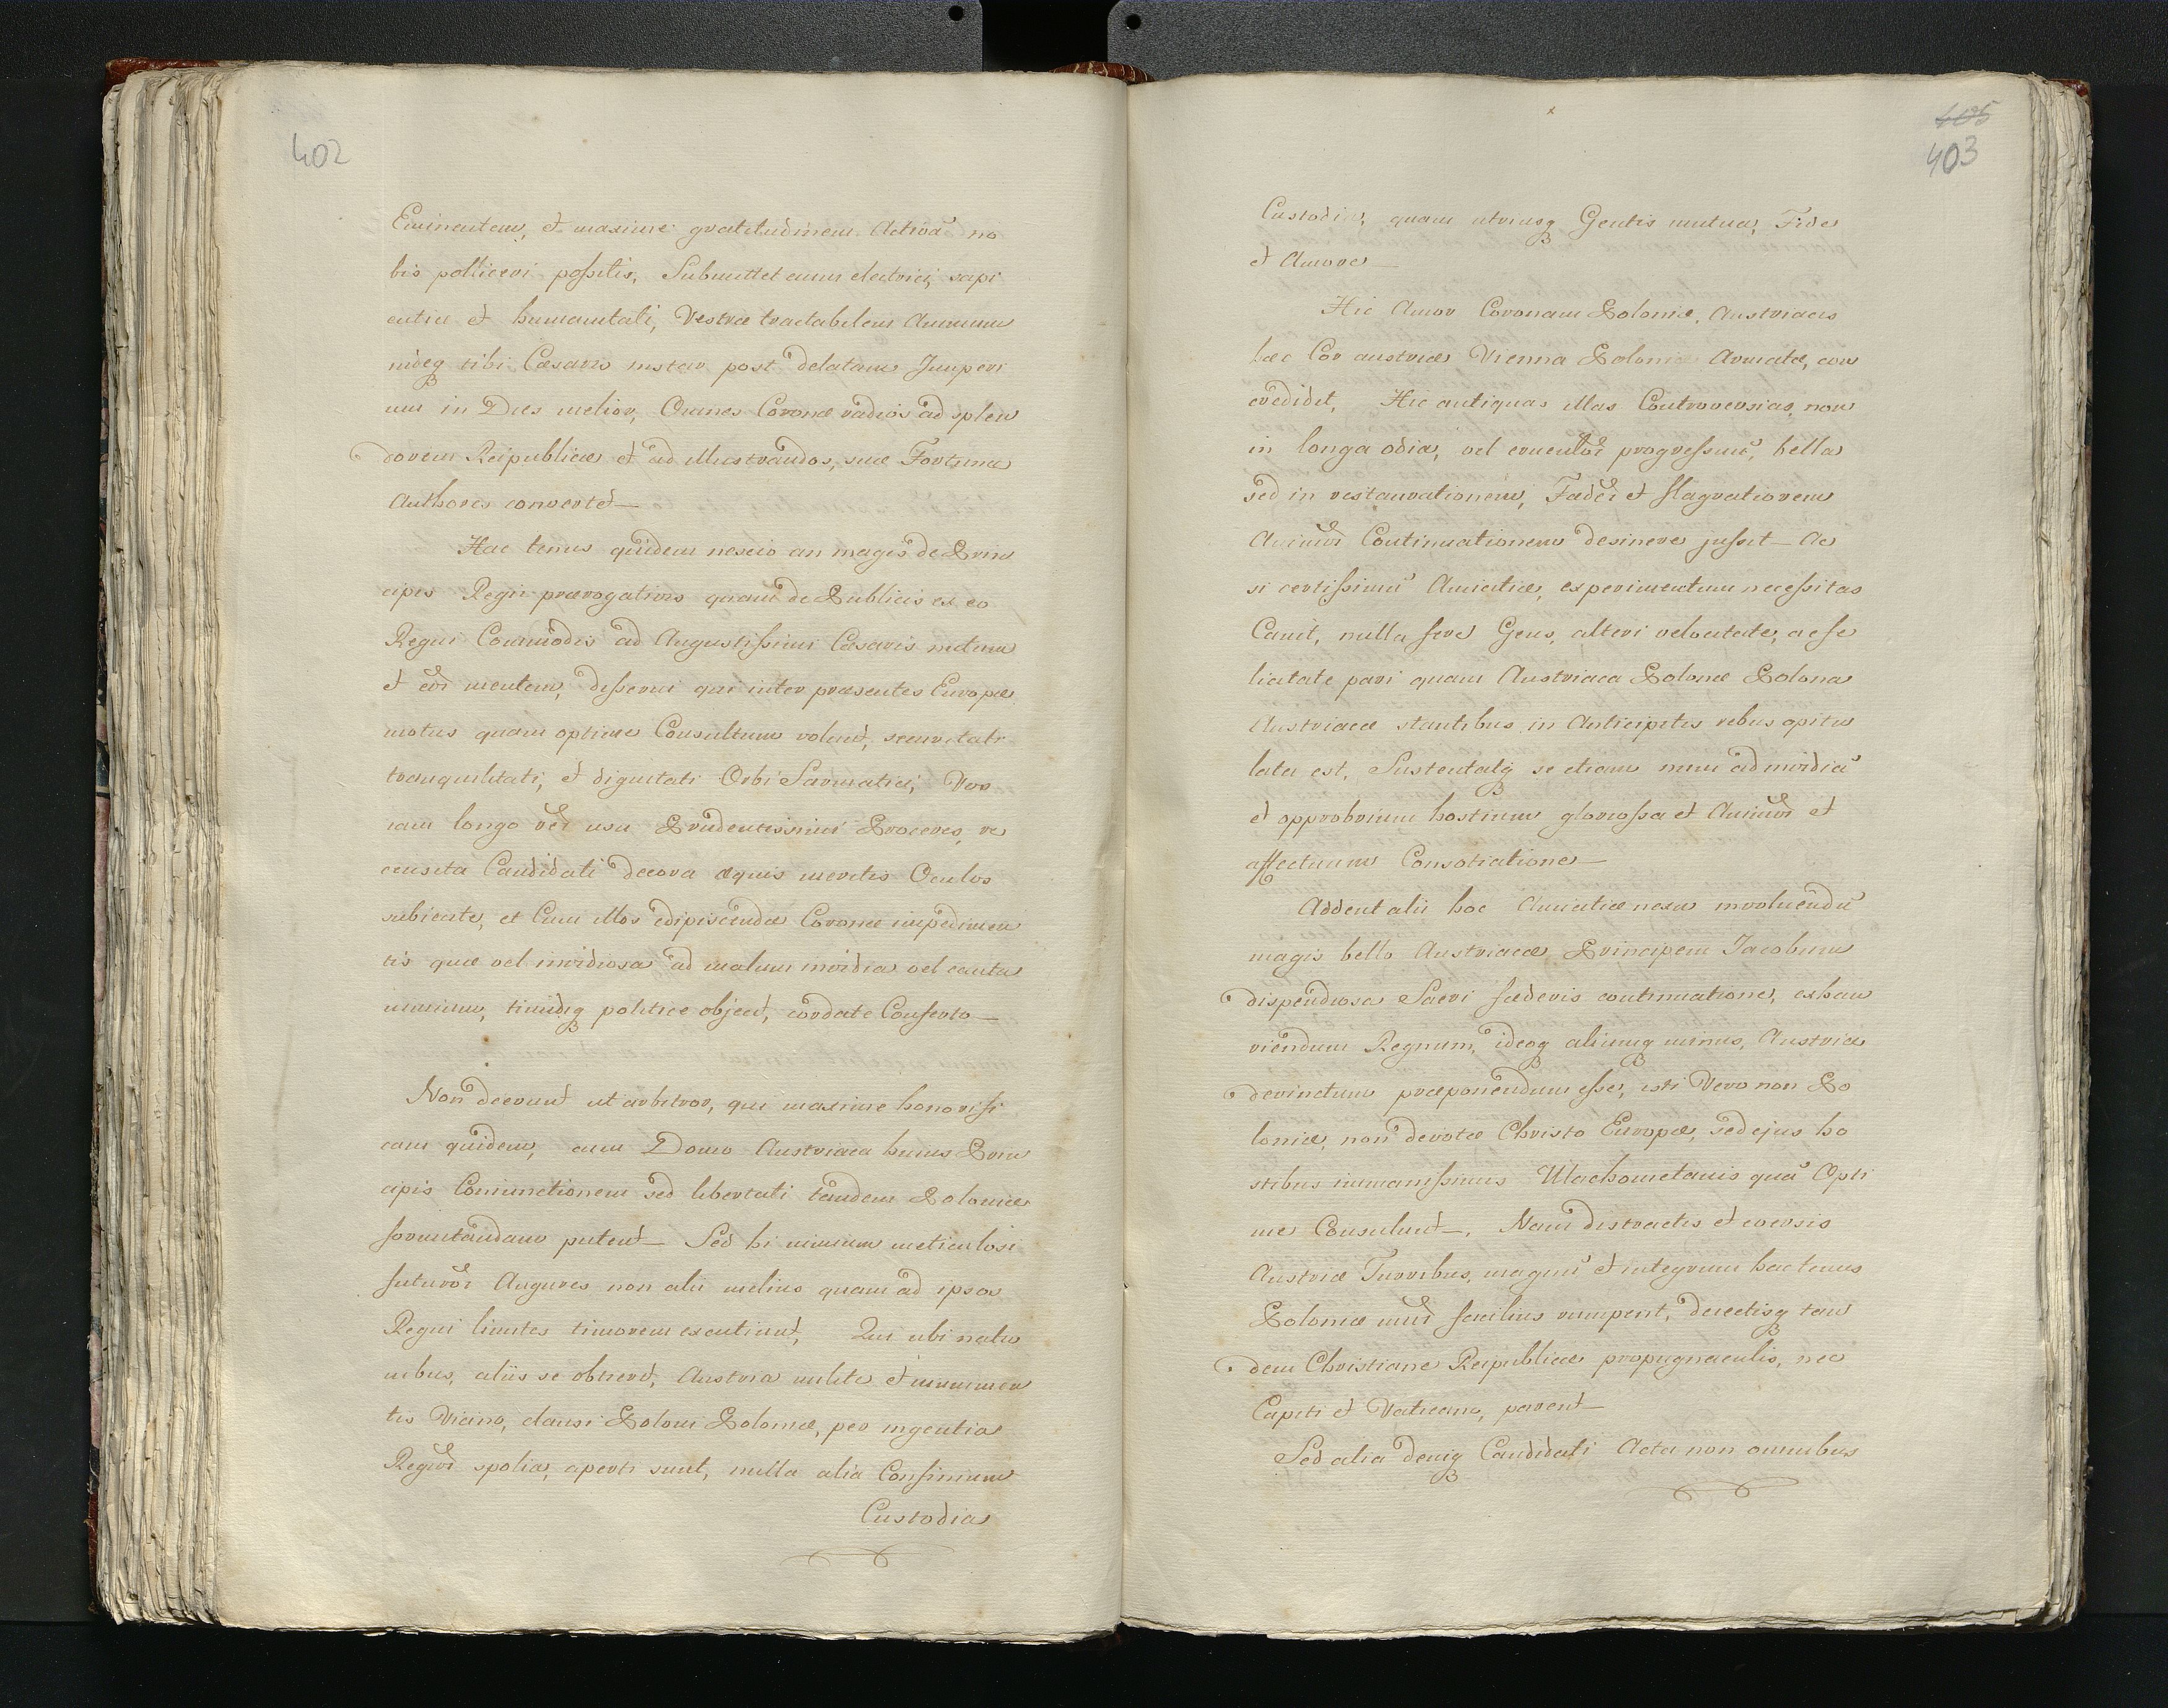 402
Eminentem, et maxime gratitudinem Activã no
bis polliceri possitis, Submittet enim electrici, sapi
entia et humanitati, Vestræ tractabilem Animum
nideq sibi Cæsaris instar post delatam Imperi
um in Dies melior, Omnes Coronæ radios ad splen
dorem Reipublicæ et ad illustrandos, suæ Fortunæ
Authores convertet—
Hac tenus quidem nescio an magis de Prin
cipis Regii prærogativis quam de Publicis ex eo
Regni Commodis ad Augustissimi Cæsaris nutum
et mentem, disserui qui inter præsentes Europæ
motus quam optime Consultum volunt, securitati
tranquilitati, et dignitati Orbi Sarmatici, Vos
iam longo usu Prudentissimi Proceres, re
censita Candidati decora æquis meritis Oculos
subicite, et Cum illos edipiscendæ Coronæ impedimen
tis quæ vel invidiosa ad malum invidia vel cauta
nimium, timidq politice objecit, cordate Conferto—
Non deerunt ut arbitror, qui maxime honorifi
cam quidem, cum Domo Austriaca huius Prin
cipis Coniunctionem sed libertati tandem Poloniæ
formidandam putent— Sed hi nimium meticulosi
futuror Augures non alii melius quam ad ipsos
Regni limites timorem excutiunt, Qui ubi nulis
nibus, aliis se obtierit, Austria milite et munimen
tis Vicino, clausi Poloni Poloniæ, per ingentia
Regnor spolia, aperti sunt, nulla alia Confinium
Custodia
405
403
Custodia, quam utriusq Gentis mutua, Fide
et Amore—
Hic Amor Coronam Poloniæ, Austriacis
hæc Cor austriæ Vienna Poloniæ Armatæ, con
credidit, Hic antiquas illas Controversias, non
in longa odia, vel cruentor progressum, bella
sed in restaurationem, Fæder et flagratiorem
Animor Continuationem desinere jussit— Ac
si certissimũ Amicitiæ, experimentum necessitas
Canit, nulla fere Gens, alteri velocitate, ac fe
licitate pari quam Austriaca Polonæ Polona
Austriacæ stantibus in Ancipitis rebus opitu
lata est, Sustentatq se etiam num ad invidiã
et opprobrium hostium gloriossa et Animor et
affectuum Consotiatione—
Addent alii hoc Amicitiæ nexu involuendũ
magis bello Austriacæ Principem Jacobum
dispendiosa Sacri fæderis continuatione, exhau
riendum Regnum, ideoq aliumq minus, Austriæ
devinctum præponendum esse, isti Vero non Po
loniæ, non devotæ Christo Europæ, sed ejus ho
stibus immanissimis Machometanis quã Opti
me Consulunt—. Nam distractis et eversis
Austriæ Turribus, magnũ et integrum hactenus
Poloniæ mur facilius rumpent, dereetisq tan
dem Christianæ Reipublicæ propugnaculis, nec
Capiti et Vaticano, parent—
Sed alia deniq Candidati Acta non omnibus